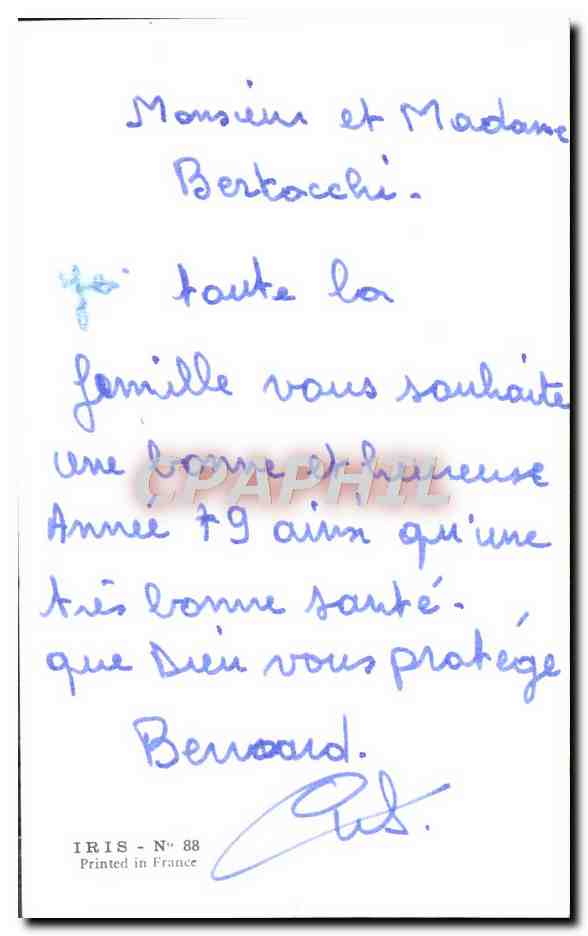 Monsieur et Madame
Bertacchi.
toute la
famille vous souhaite
une bonne et heureuse
Année 79 ainsi qu'une
très bonne santé.
que Dieu vous protége
Bernard.
IRIS - N° 88
Printed in France
CPAPHIL